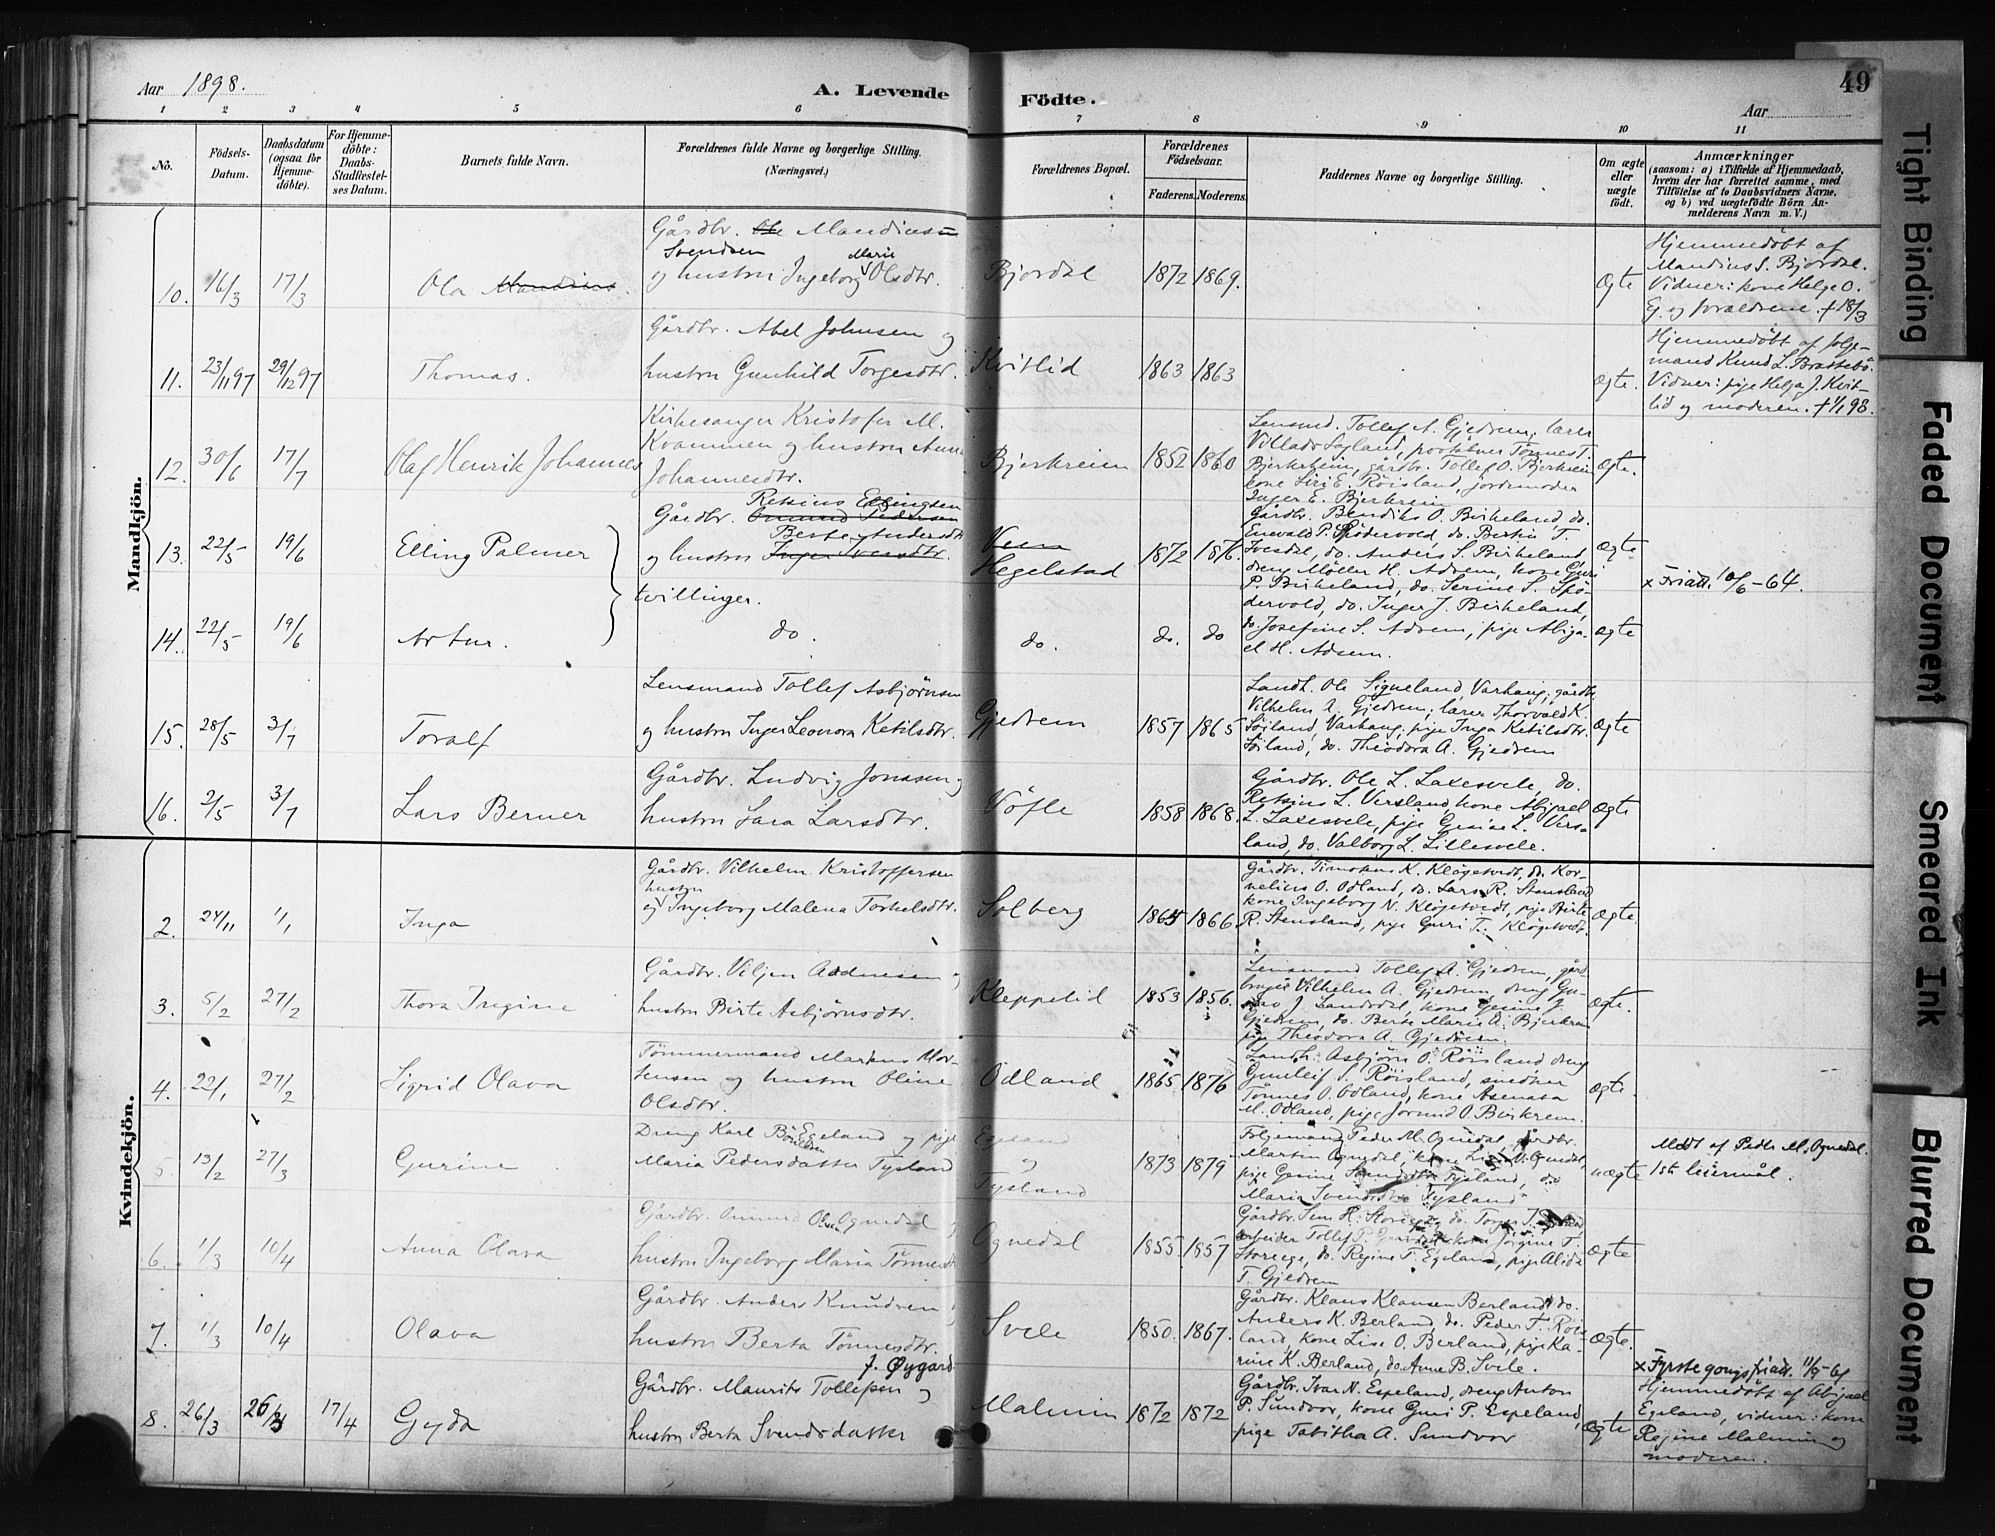 Aar 1898.
A. Levende
Födte.
49
Aar
1 2 3 4 5 6 7 8 9 10 11
No.
Födsels-Datum.
Daabsdatum (ogsaa för Hjemme-döbte).
For Hjemme-döbte: Daabs-Stadfæstel-ses Datum.
Barnets fulde Navn.
Forældrenes fulde Navne og borgerlige Stilling.
(Næringsvei.)
Forældrenes Bopæl.
Forældrenes Födselsaar.
Faderens. Moderens.
Faddernes Navne og borgerlige Stilling.
Om ægte eller uægte födt.
Anmærkninger
(saasom: a) i Tilfælde af Hjemmedaab,
hvem der har forrettet samme, med
Tilföielse af to Daabsvidners Navne,
og b) ved uægtefödte Börn An-
melderens Navn m. V.)
Mandkjön.
10. 16/3 17/3 Ola Mandius.
Gårdbr. Ole Mandius
Svendsen
og hustru Ingeborg Marie Olsdtr.
Bjordal 1872 1869. Ægte
Hjemmedöbt af
Mandius S. Bjordal.
Vidner: kone Helge O.
E. og forældrene. † 18/3
11. 23/11 97 29/12 97 Thomas.
Gårdbr. Abel Johnsen og
hustru Gunhild Torgesdtr.
Kvitlid 1863 1863 ægte.
Hjemmedöbt af fölge-
mand Knud L. Brattebö.
Vidner: pige Helga J. Kvit-
lid og moderen. † 1/1 98.
12. 30/6 17/7 Olaf Henrik Johannes
Kirkesanger Kristofer M.
Kvammen og hustru Anna
Johannesdtr.
Bjerkreim 1852 1860 ægte.
Lensmd. Tollef A. Gjedrem, lærer
Villads Løyland, postaabner Tönnes T.
Bjerkreim, gårdbr. Tollef O. Bjerkreim
kone Siri E. Röisland, jordemoder
Inger E. Bjerkreim
13. 22/5 19/6 Elling Palmer
Retsius Ellingsen
Gårdbr. Omund Pedersen
Berte Andersdtr
og hustru Inger Iversdtr.
tvillinger.
Hegelstad 1872 1876. ægte
Gårdbr. Bendiks O. Birkeland, do.
Enevald P. Spödervold, do. Bertin T.
Ivesdal, do. Anders S. Birkeland,
dreng Möller H. Adsem, kone Guri
P. Birkeland, do. Serine S. Spö-
dervold, do. Inger J. Birkeland,
do. Josefine S. Adsem, pige Abiga-
el H. Adsem.
x Friatt. 10/6-64.
14. 22/5 19/6 Artur. do. do. do. do ægte
15. 28/5 3/7 Toralf
Lensmand Tollef Asbjörnsen
og hustru Inger Leonora Ketilsdtr.
Gjedrem 1857 1865 ægte
Landh. Ole Signeland, Varhaug, gårdbr.
Vilhelm A. Gjedrem, lærer Thorvald K.
Söiland, Varhaug, pige Inga Ketilsdtr.
Söiland, do. Theodora A. Gjedrem
16. 2/5 3/7 Lars Berner
Gårdbr. Ludvig Jonassen og
hustru Sara Larsdtr.
Vöfle 1858 1868. ægte
Gårdbr. Ole L. Laxesvele, do.
Retsius L. Versland, kone Abigael
L. Laxesvele, pige Gesine L. Vers-
land, do. Valborg L. Lillesvele.
Kvindekjön.
2. 24/11 1/1 Inga
Gårdbr. Vilhelm Kristoffersen
hustru
og Ingeborg Malena Torkelsdtr.
Solberg 1865 1866 ægte.
Gårdbr. Timoteus K. Klögetvedt, do. Kor-
nelius O. Odland, do. Lars R. Stensland
kone Ingeborg N. Klögetvedt, pige Birte
R. Stensland, pige Guri T. Klögetvedt.
3. 5/2 27/2 Thora Ingine
Gårdbr. Viljen Aadnesen og
hustru Birte Asbjörnsdtr.
Kleppelid 1853 1856. ægte.
Lensmand Tollef A. Gjedrem, gård-
bruger Vilhelm A. Gjedrem, dreng Gu-
stav J. Landsdal, kone Gesine J.
Gjedrem, do. Berte Marie A. Bjerkrem
pige Theodora A. Gjedrem.
4. 22/1 27/2 Sigrid Olava
Tömmermand Markus Mor-
tensen og hustru Oline
Olsdtr.
Odland 1865 1876 ægte.
Landh. Asbjörn O. Röisland dreng
Gunleif S. Röisland, snedker
Tönnes O. Odland, kone Asenata
M. Odland, pige Jormid O. Birkrem.
5. 13/2 27/3 Gurine
Dreng Karl Börildsen Egeland og pige
Maria Pedersdatter Tysland
Egeland
og
Tysland
1873 1879 uægte
Folgemand Peder M. Ognedal, Gårdbr.
Martin Ognedal, kone Lise V. Ognedal,
pige Gesine Svendsdtr Tysland, do.
Maria Svendsdtr Tysland
Mldt af Peder M. Ognedal.
1ste leiermål.
6. 1/3 10/4 Anna Olava
Gårdbr. Omund Olsen Ognedal og
hustru Ingeborg Maria Tönnesdtr
Ognedal 1855 1857 ægte
Gårdbr. Sem H. Storeega, do. Torger T.
arbeider Tollef P. kone Jörgine T.
Storeega, do. Regine T. Egeland, pige Alida
T. Gjedrem
7. 1/3 10/4 Olava
Gårdbr. Anders Knudsen og
hustru Berta Tönnesdtr.
f. Øygard
Svele 1850. 1867. ægte.
Gårdbr. Klaus Klausen Berland, do.
Anders K. Berland, do. Peder T. Röis-
land, kone Lise O. Berland, pige Ka-
rine K. Berland, do. Anne B. Svele.
8. 26/3 26/3 17/4 Gyda
Gårdbr. Maurits Tollefsen og
hustru Berta Svendsdatter
Malmin 1872 1872 ægte
Gårdbr. Ivar N. Espeland, dreng Anton
P. Sundvor, kone Guri P. Espeland,
pige Tabitha A. Sundvor
x Fyrstegongsfriatt. 11/5-64
Hjemmedöbt af Abigael
Egeland, vidner: kone
Regine Malmin og
moderen.
Tight Binding
Faded Document
Smeared Ink
Blurred Document